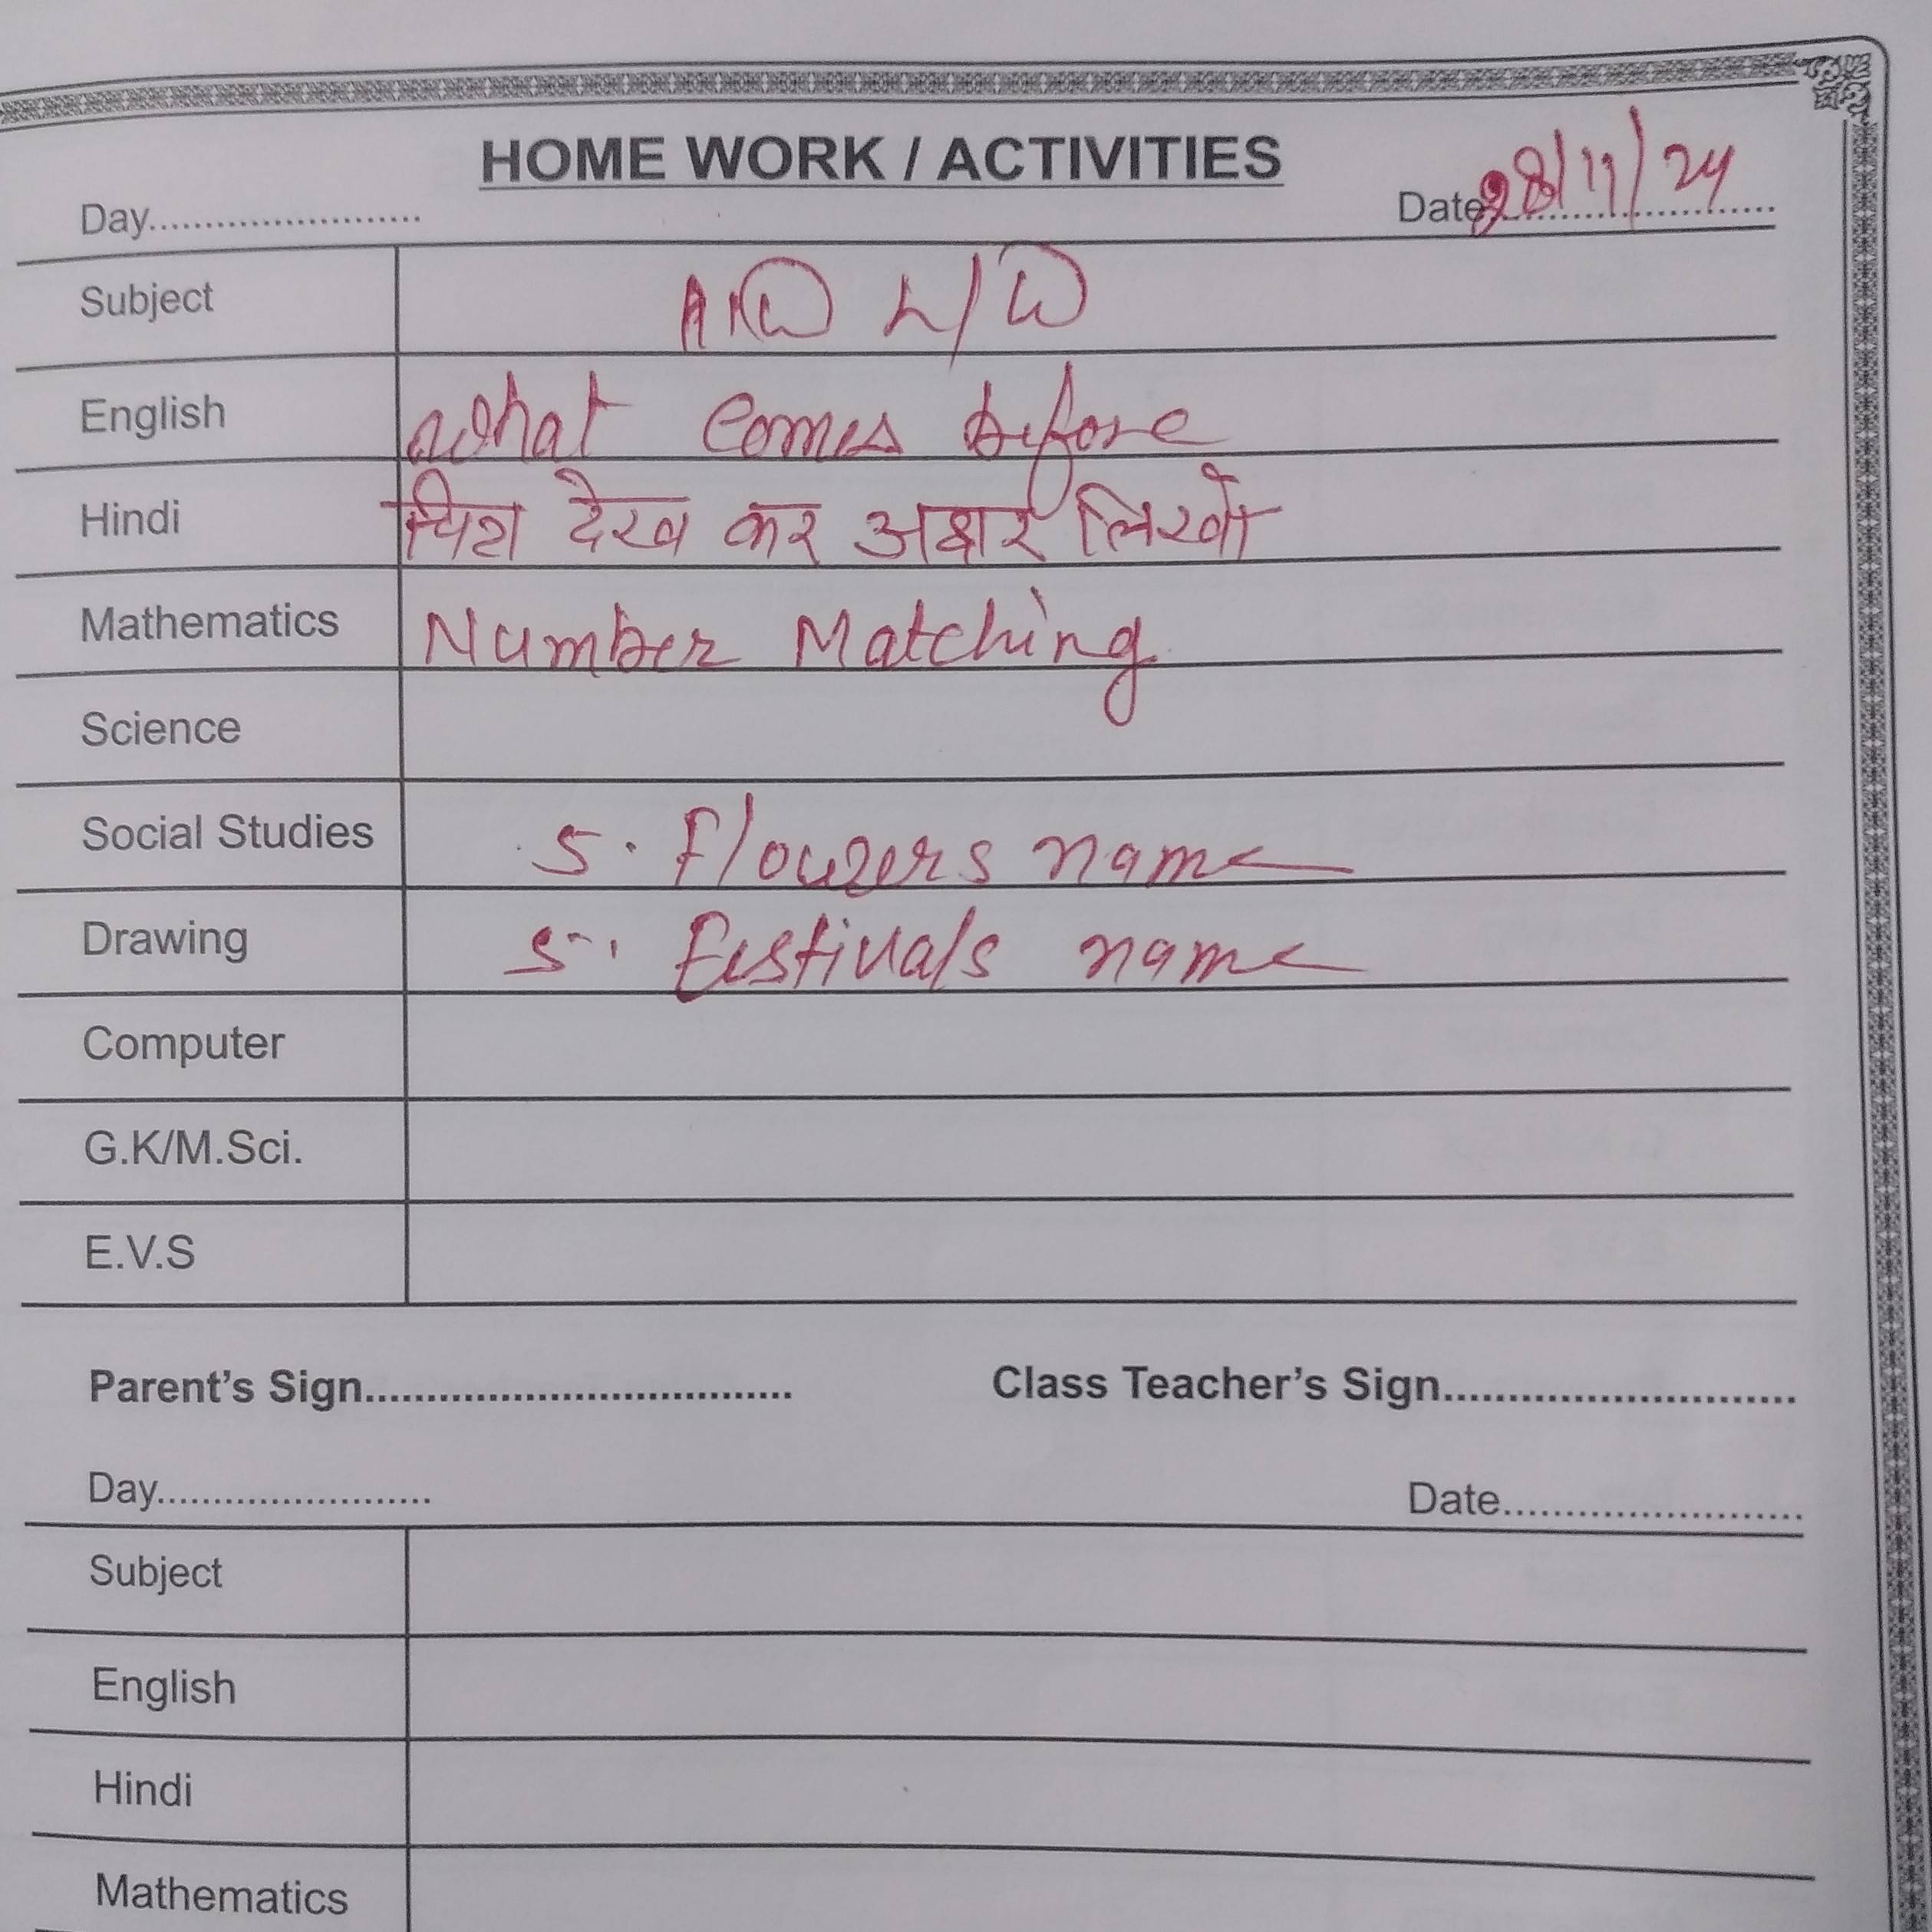 HOME WORK / ACTIVITIES
Day........................ Date 28/11/24
Subject L/W
English what comes before
Hindi चित्र देख कर अक्षर लिखो
Mathematics Number Matching
Science
Social Studies 5. Flowers name
Drawing 5. Festivals name
Computer
G.K/M.Sci.
E.V.S
Parent's Sign................................... Class Teacher's Sign.............................
Day........................ Date..........................
Subject
English
Hindi
Mathematics